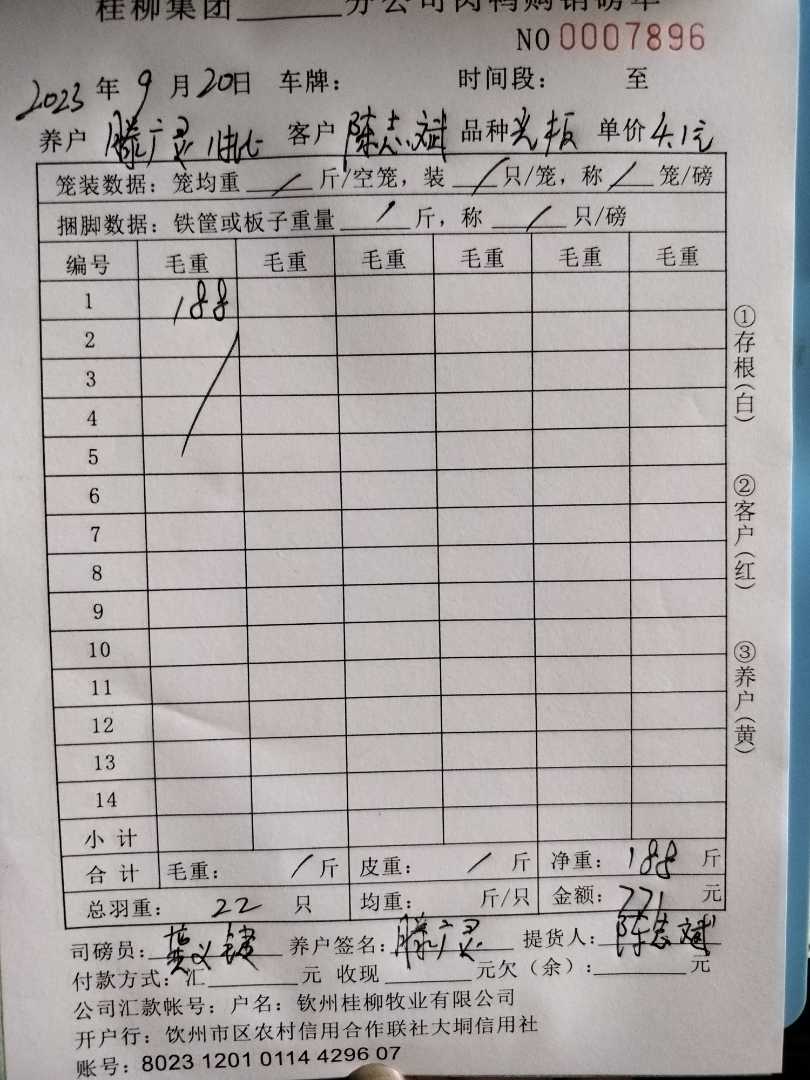 桂柳集团______分公司肉鸭购销磅单
NO 0007896
2023年9月20日 车牌: 时间段: 至
养户 滕广灵 客户 陈志斌 品种 光板 单价 4.1元
笼装数据: 笼均重 / 斤/空笼, 装 / 只/笼, 称 / 笼/磅
捆脚数据: 铁筐或板子重量 / 斤, 称 / 只/磅
编号 毛重 毛重 毛重 毛重 毛重 毛重
1 188
2
3
4
5
6
7
8
9
10
11
12
13
14
小计
合计 毛重: / 斤 皮重: / 斤 净重: 188 斤
总羽重: 22 只 均重: 斤/只 金额: 771 元
司磅员: 养户签名: 滕广灵 提货人: 陈志斌
付款方式: 汇______元 收现______元欠(余):______元
公司汇款帐号: 户名: 钦州桂柳牧业有限公司
开户行: 钦州市区农村信用合作联社大垌信用社
账号: 8023 1201 0114 4296 07
①存根(白)
②客户(红)
③养户(黄)